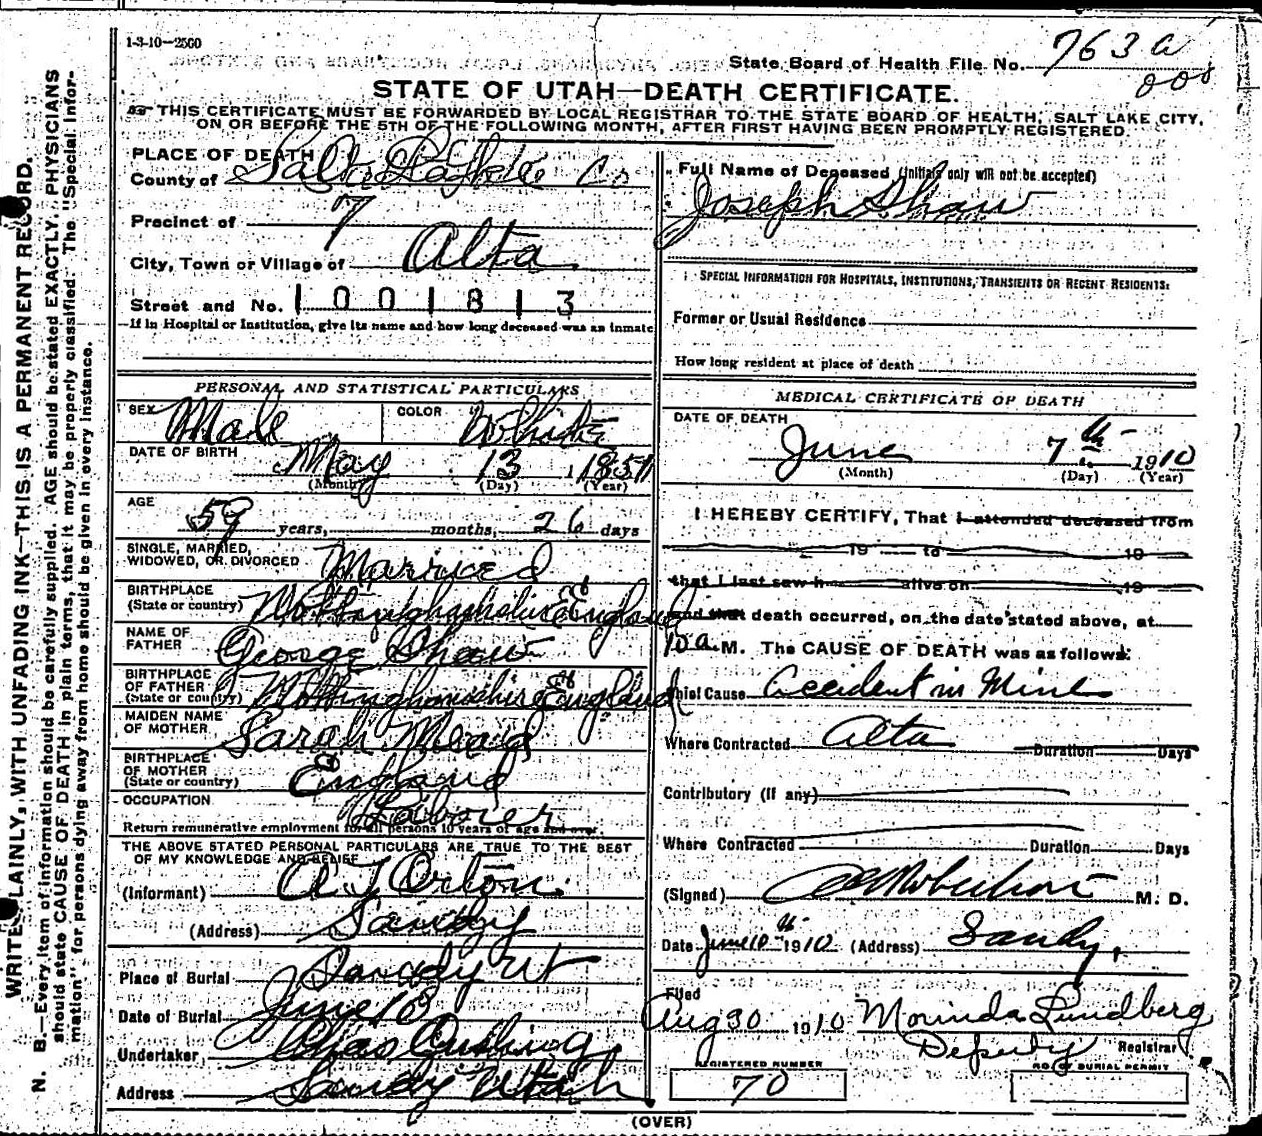 1-3-10—2500
State Board of Health File No. 763 a
STATE OF UTAH—DEATH CERTIFICATE.
THIS CERTIFICATE MUST BE FORWARDED BY LOCAL REGISTRAR TO THE STATE BOARD OF HEALTH, SALT LAKE CITY,
ON OR BEFORE THE 5TH OF THE FOLLOWING MONTH, AFTER FIRST HAVING BEEN PROMPTLY REGISTERED.
WRITE PLAINLY, WITH UNFADING INK—THIS IS A PERMANENT RECORD.
N. B.—Every item of information should be carefully supplied. AGE should be stated EXACTLY. PHYSICIANS
should state CAUSE OF DEATH in plain terms, that it may be properly classified. The "Special Infor-
mation" for persons dying away from home should be given in every instance.
PLACE OF DEATH
County of Salt Lake Co
Precinct of 7
City, Town or Village of Alta
Street and No. 1001813
If in Hospital or Institution, give its name and how long deceased was an inmate
PERSONAL AND STATISTICAL PARTICULARS
SEX Male COLOR White
DATE OF BIRTH May 13 1851
(Month) (Day) (Year)
AGE 59 years, months, 26 days
SINGLE, MARRIED,
WIDOWED, OR DIVORCED Married
BIRTHPLACE
(State or country) Nottinghamshire England
NAME OF
FATHER George Shaw
BIRTHPLACE
OF FATHER
(State or country) Nottinghamshire England
MAIDEN NAME
OF MOTHER Sarah Mead
BIRTHPLACE
OF MOTHER
(State or country) England
OCCUPATION Laborer
Return remunerative employment for all persons 10 years of age and over.
THE ABOVE STATED PERSONAL PARTICULARS ARE TRUE TO THE BEST
OF MY KNOWLEDGE AND BELIEF
(Informant) A J Orton
(Address) Sandy
Place of Burial Sandy Ut
Date of Burial June 10
Undertaker, Chas Cushing
Address Sandy Utah
Full Name of Deceased (Initials only will not be accepted)
Joseph Shaw
SPECIAL INFORMATION FOR HOSPITALS, INSTITUTIONS, TRANSIENTS OR RECENT RESIDENTS:
Former or Usual Residence
How long resident at place of death
MEDICAL CERTIFICATE OF DEATH
DATE OF DEATH
June 7th 1910
(Month) (Day) (Year)
I HEREBY CERTIFY, That I attended deceased from
19 to 19
that I last saw h alive on 19
and that death occurred, on the date stated above, at
10 a. M. The CAUSE OF DEATH was as follows:
Chief Cause Accident in Mine
Where Contracted Alta Duration Days
Contributory (If any)
Where Contracted Duration Days
(Signed) Robertson M. D.
Date June 10th 1910 (Address) Sandy,
Filed
Aug 30 1910 Morinda Lundberg
Deputy Registrar
REGISTERED NUMBER
70
NO. OF BURIAL PERMIT
(OVER)